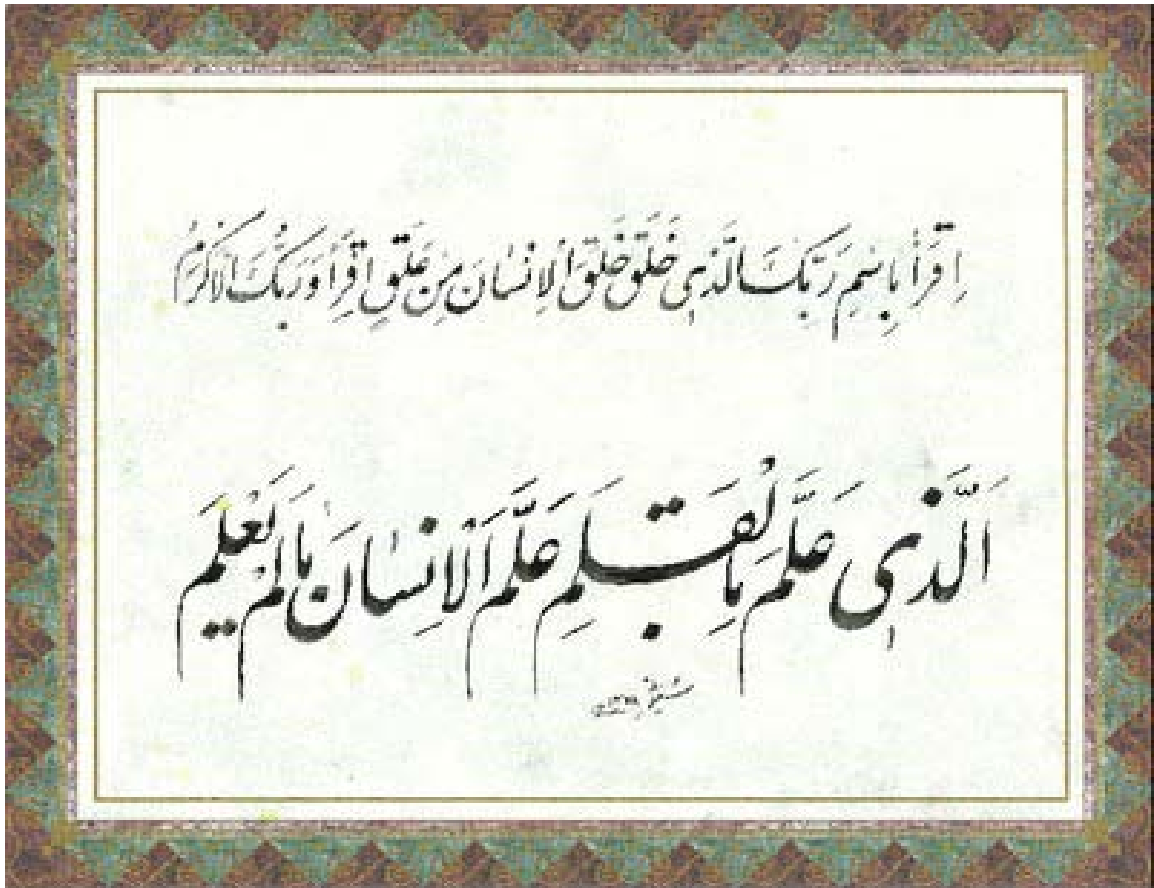 اِقْرَأْ بِاسْمِ رَبِّكَ الَّذِی خَلَقَ خَلَقَ الْاِنْسٰانَ مِنْ عَلَقٍ اِقْرَأْ وَ رَبُّكَ الْاَكْرَمُ
اَلَّذِی عَلَّمَ بِالْقَلَمِ عَلَّمَ الْاِنْسٰانَ مٰا لَمْ یَعْلَمْ